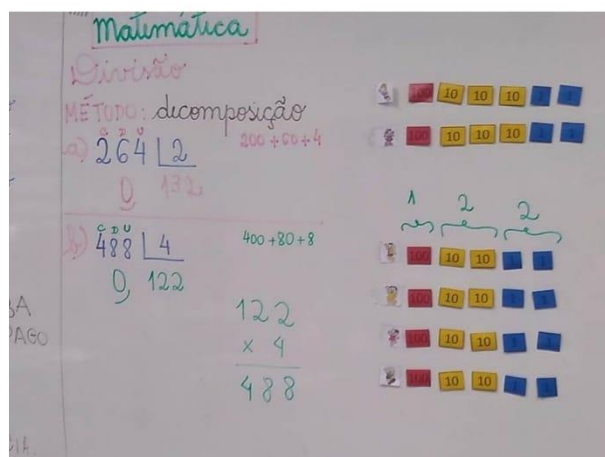 Matemática
Divisão
MÉTODO: decomposição
a) C D U 200+60+4
264 2
0 132
b) C D U
488 4 400+80+8
0 122
122
x 4
488
100 10 10 10 1 1
100 10 10 10 1 1
1 2 2
100 10 10 1 1
100 10 10 1 1
100 10 10 1 1
100 10 10 1 1
PAGO